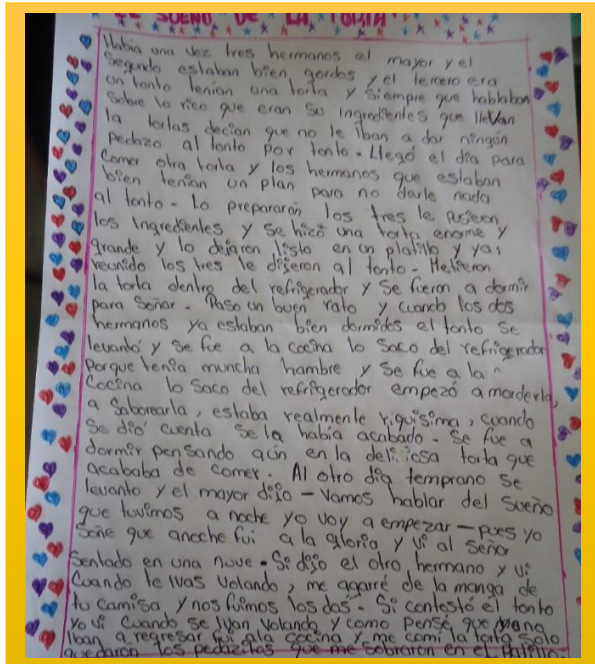 EL SUEÑO DE LA TORTA
Había una vez tres hermanos el mayor y el
segundo estaban bien gordos y el tercero era
un tonto tenían una torta y siempre que hablaban
sobre lo rico que eran su ingredientes que llevan
la tortas decían que no le iban a dar ningún
pedazo al tonto por tonto. Llegó el día para
comer otra torta y los hermanos que estaban
bien tenían un plan para no darle nada
al tonto - Lo prepararón los tres le pusieron
los ingredientes y se hizó una torta enorme y
grande y lo dejaron listo en un platillo y ya,
reunido los tres le dijeron al tonto - Metieron
la torta dentro del refrigerador y se fueron a dormir
para soñar. Paso un buen rato y cuando los dos
hermanos ya estaban bien dormidos el tonto se
levantó y se fue a la cocina lo saco del refrigerador
porque tenía muncha hambre y se fue a la
cocina lo saco del refrigerador empezó a morderla,
a saborearla, estaba realmente riquísima, cuando
se dió cuenta se la había acabado - Se fue a
dormir pensando aún en la deliciosa torta que
acababa de comer. Al otro día temprano se
levanto y el mayor dijo - Vamos hablar del sueño
que tuvimos a noche yo voy a empezar - pues yo
soñe que anoche fui a la gloria y vi al señor
sentado en una nuve. Si dijo el otro hermano y vi
cuando te ivas volando, me agarré de la manga de
tu camisa, y nos fuimos los dos - Si contestó el tonto
yo vi cuando se ivan volando y como pensé que no
iban a regresar fui ala cocina y me comí la torta solo
quedaron los pedazitos que me sobraron en el platillo